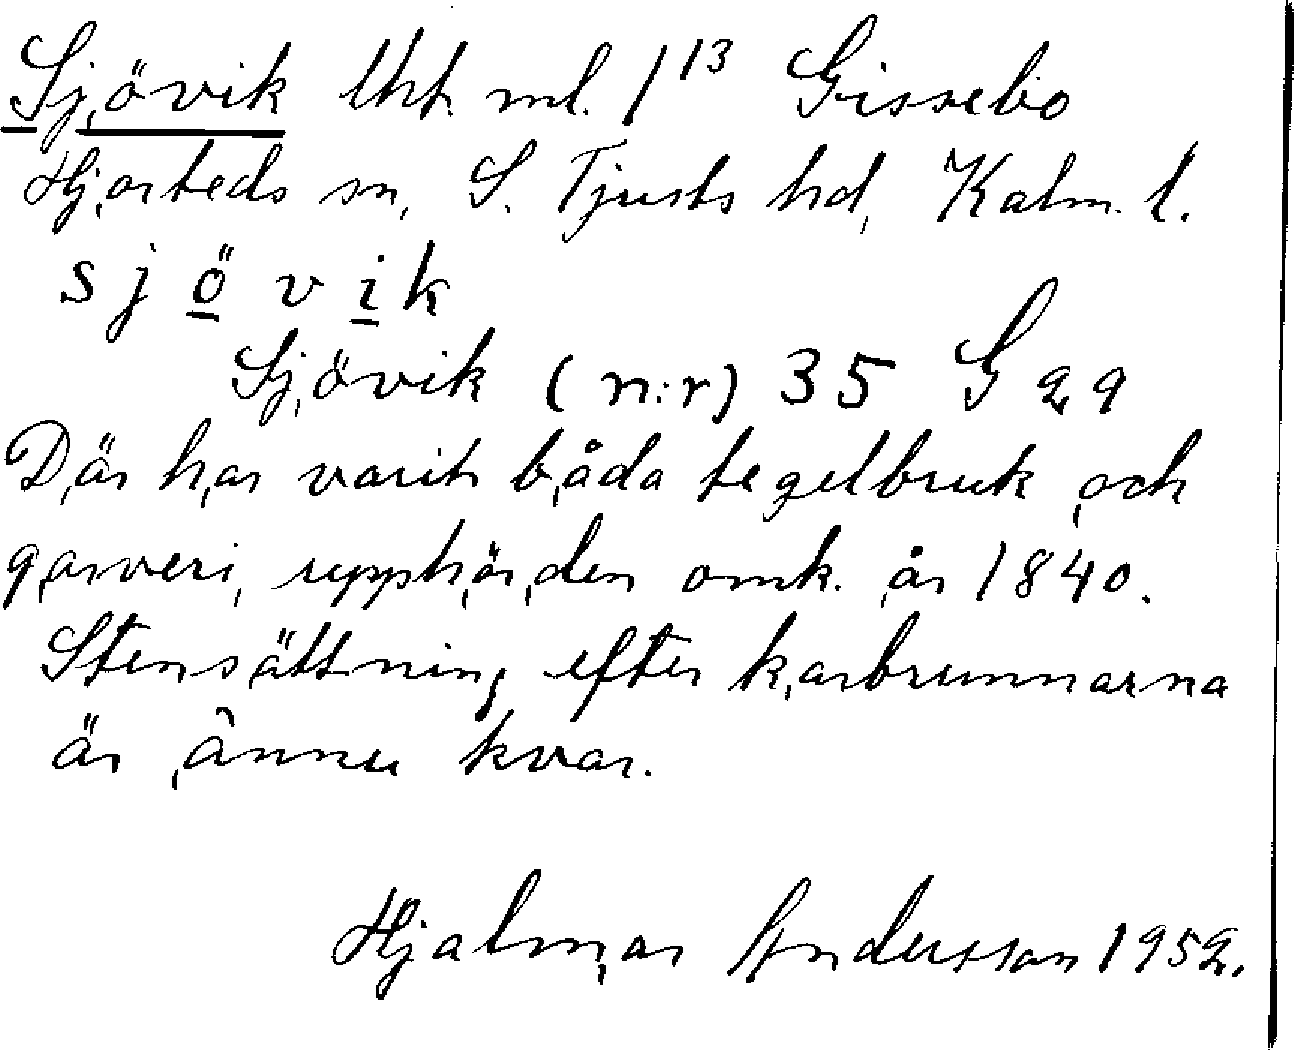 Sjövik lht. ml. 1¹³ Gissebo
Hjorteds sn, S. Tjusts hd, Kalm. l.
s j ö v i k
Sjövik (n:r) 35 G 29
Där har varit båda tegelbruk och
garveri, upphörden omk. år 1840.
Stensättning efter karbrunnarna
är ännu kvar.
Hjalmar Andersson 1952.